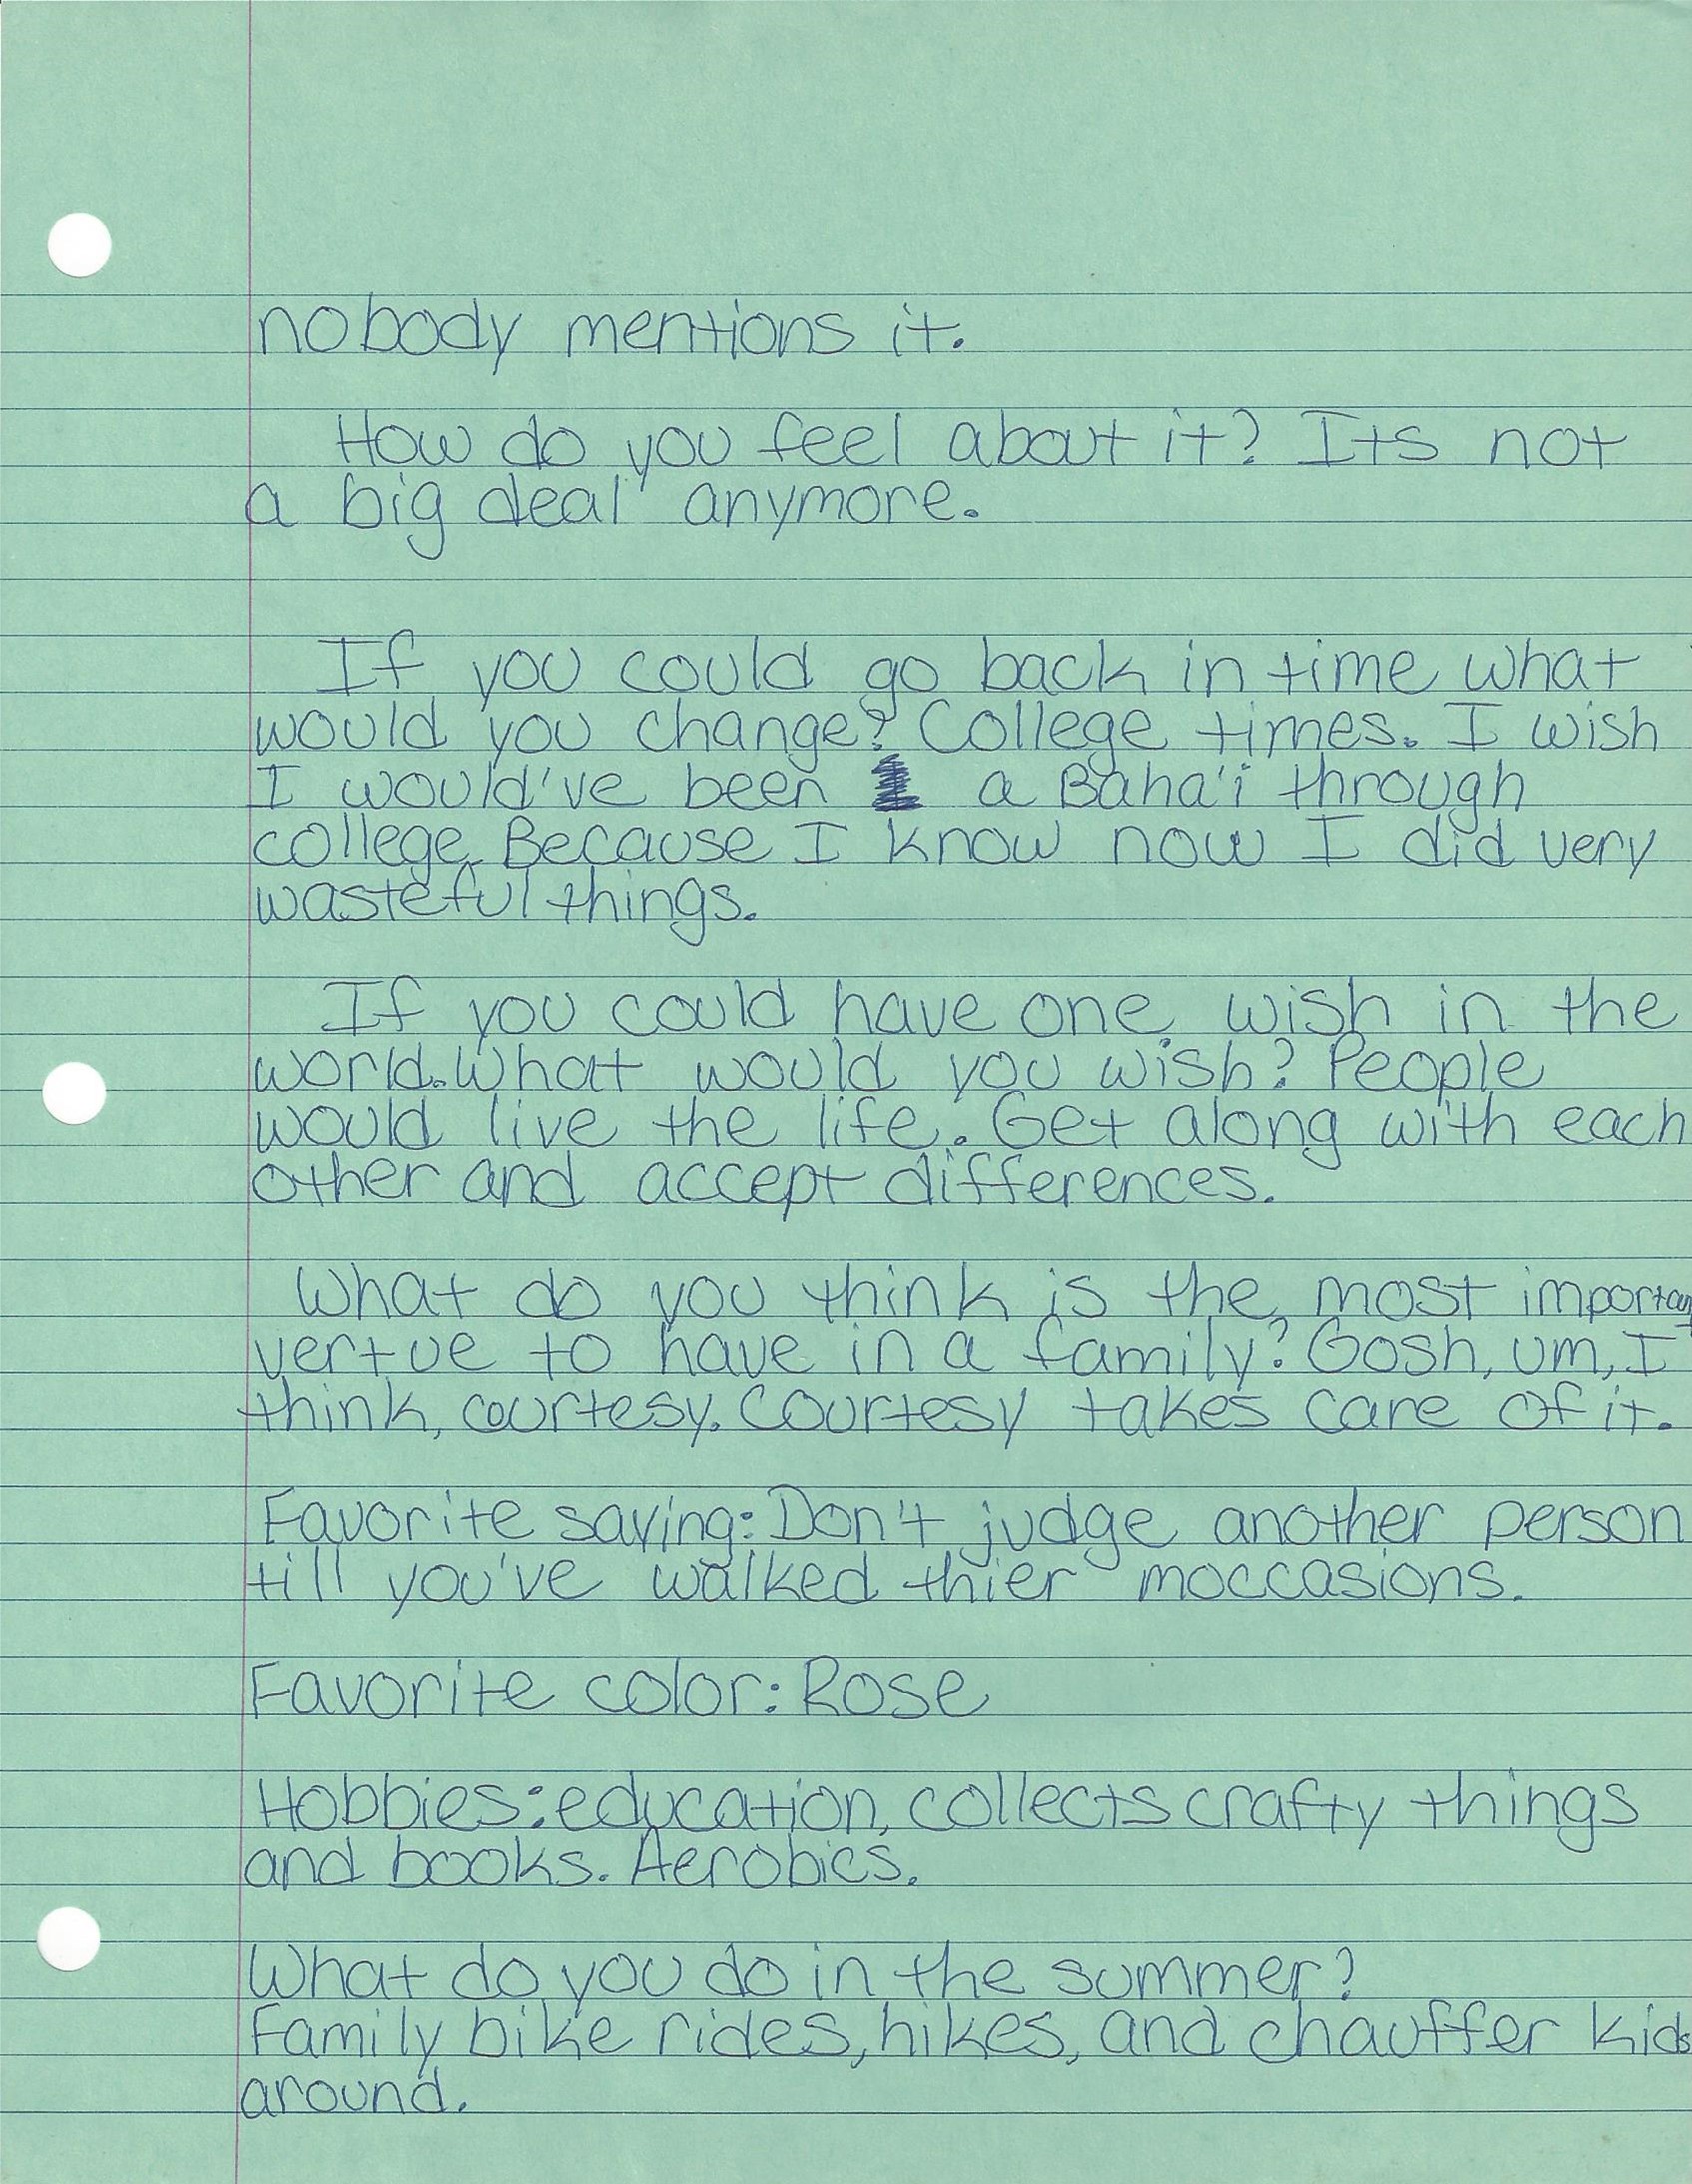 nobody mentions it.
How do you feel about it? Its not
a big deal anymore.
If you could go back in time what
would you change? College times. I wish
I would've been a Baha'i through
college. Because I know now I did very
wasteful things.
If you could have one wish in the
world. What would you wish? People
would live the life. Get along with each
other and accept differences.
What do you think is the most important
vertue to have in a family? Gosh, um, I
think, courtesy. Courtesy takes care of it.
Favorite saying: Don't judge another person
till you've walked thier moccasions.
Favorite color: Rose
Hobbies: education, collects crafty things
and books. Aerobics.
What do you do in the summer?
Family bike rides, hikes, and chauffer kids
around.